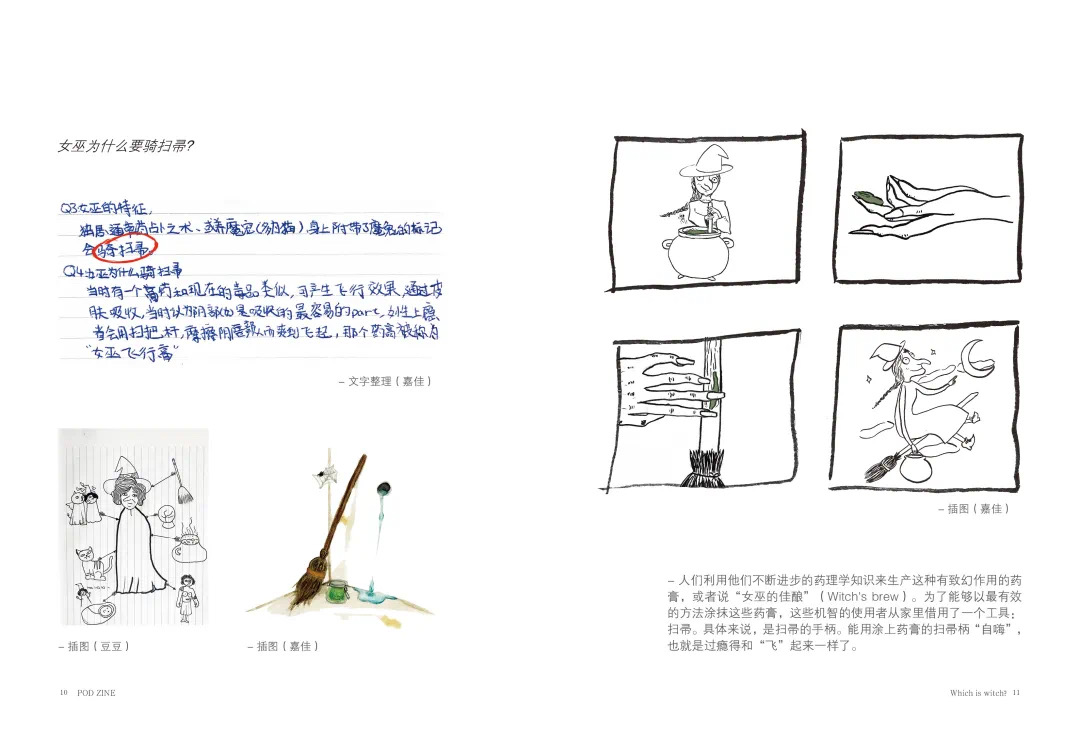 女巫为什么要骑扫帚?
Q3女巫的特征,
独居、通草药占卜之术、或养魔宠(例猫)身上附带了魔鬼的标记
会骑扫帚。
Q4女巫为什么骑扫帚
当时有一个膏药和现在的毒品类似,可产生飞行效果,通过皮
肤吸收,当时认为阴部也是吸收的最容易的part,女性上瘾
者会用扫把杆,摩擦阴唇从而来到飞起,那个药膏被称为
"女巫飞行膏"
– 文字整理(嘉佳)
– 插图(豆豆)
– 插图(嘉佳)
10 POD ZINE
– 插图(嘉佳)
– 人们利用他们不断进步的药理学知识来生产这种有致幻作用的药
膏,或者说“女巫的佳酿”(Witch's brew)。为了能够以最有效
的方法涂抹这些药膏,这些机智的使用者从家里借用了一个工具:
扫帚。具体来说,是扫帚的手柄。能用涂上药膏的扫帚柄“自嗨”,
也就是过瘾得和“飞”起来一样了。
Which is witch? 11